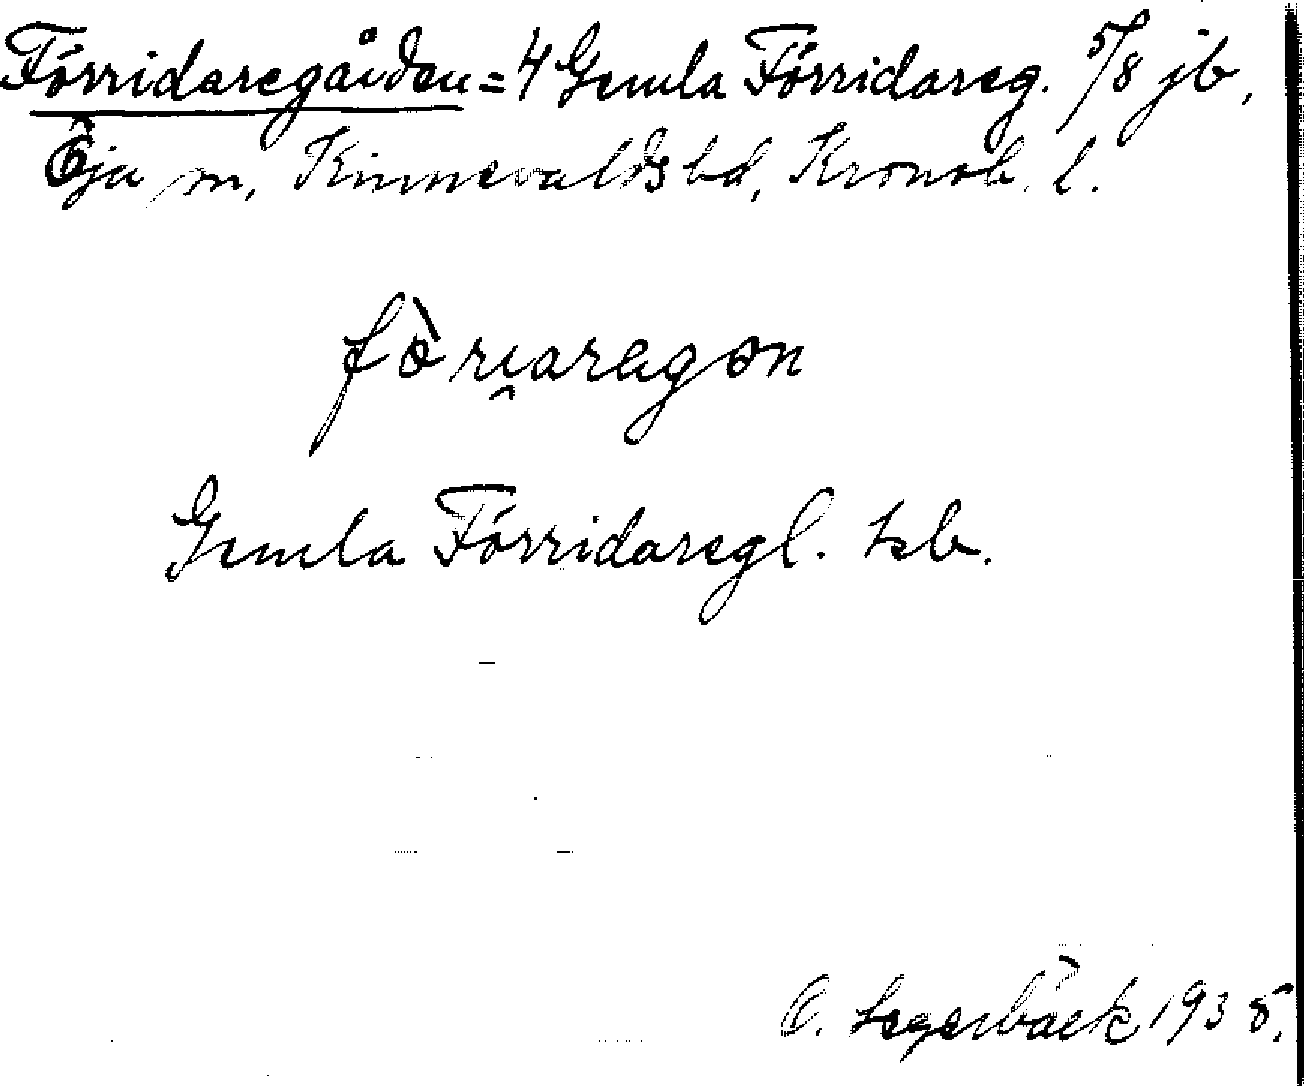 Förridaregården = 4 Gemla Förridareg. 5/8 jb,
Öja sn, Kinnevalds hd, Kronob. l.
fò̀ri̯aragɷn
Gemla Förridaregl. kb.
O. Legerbäck 1935.